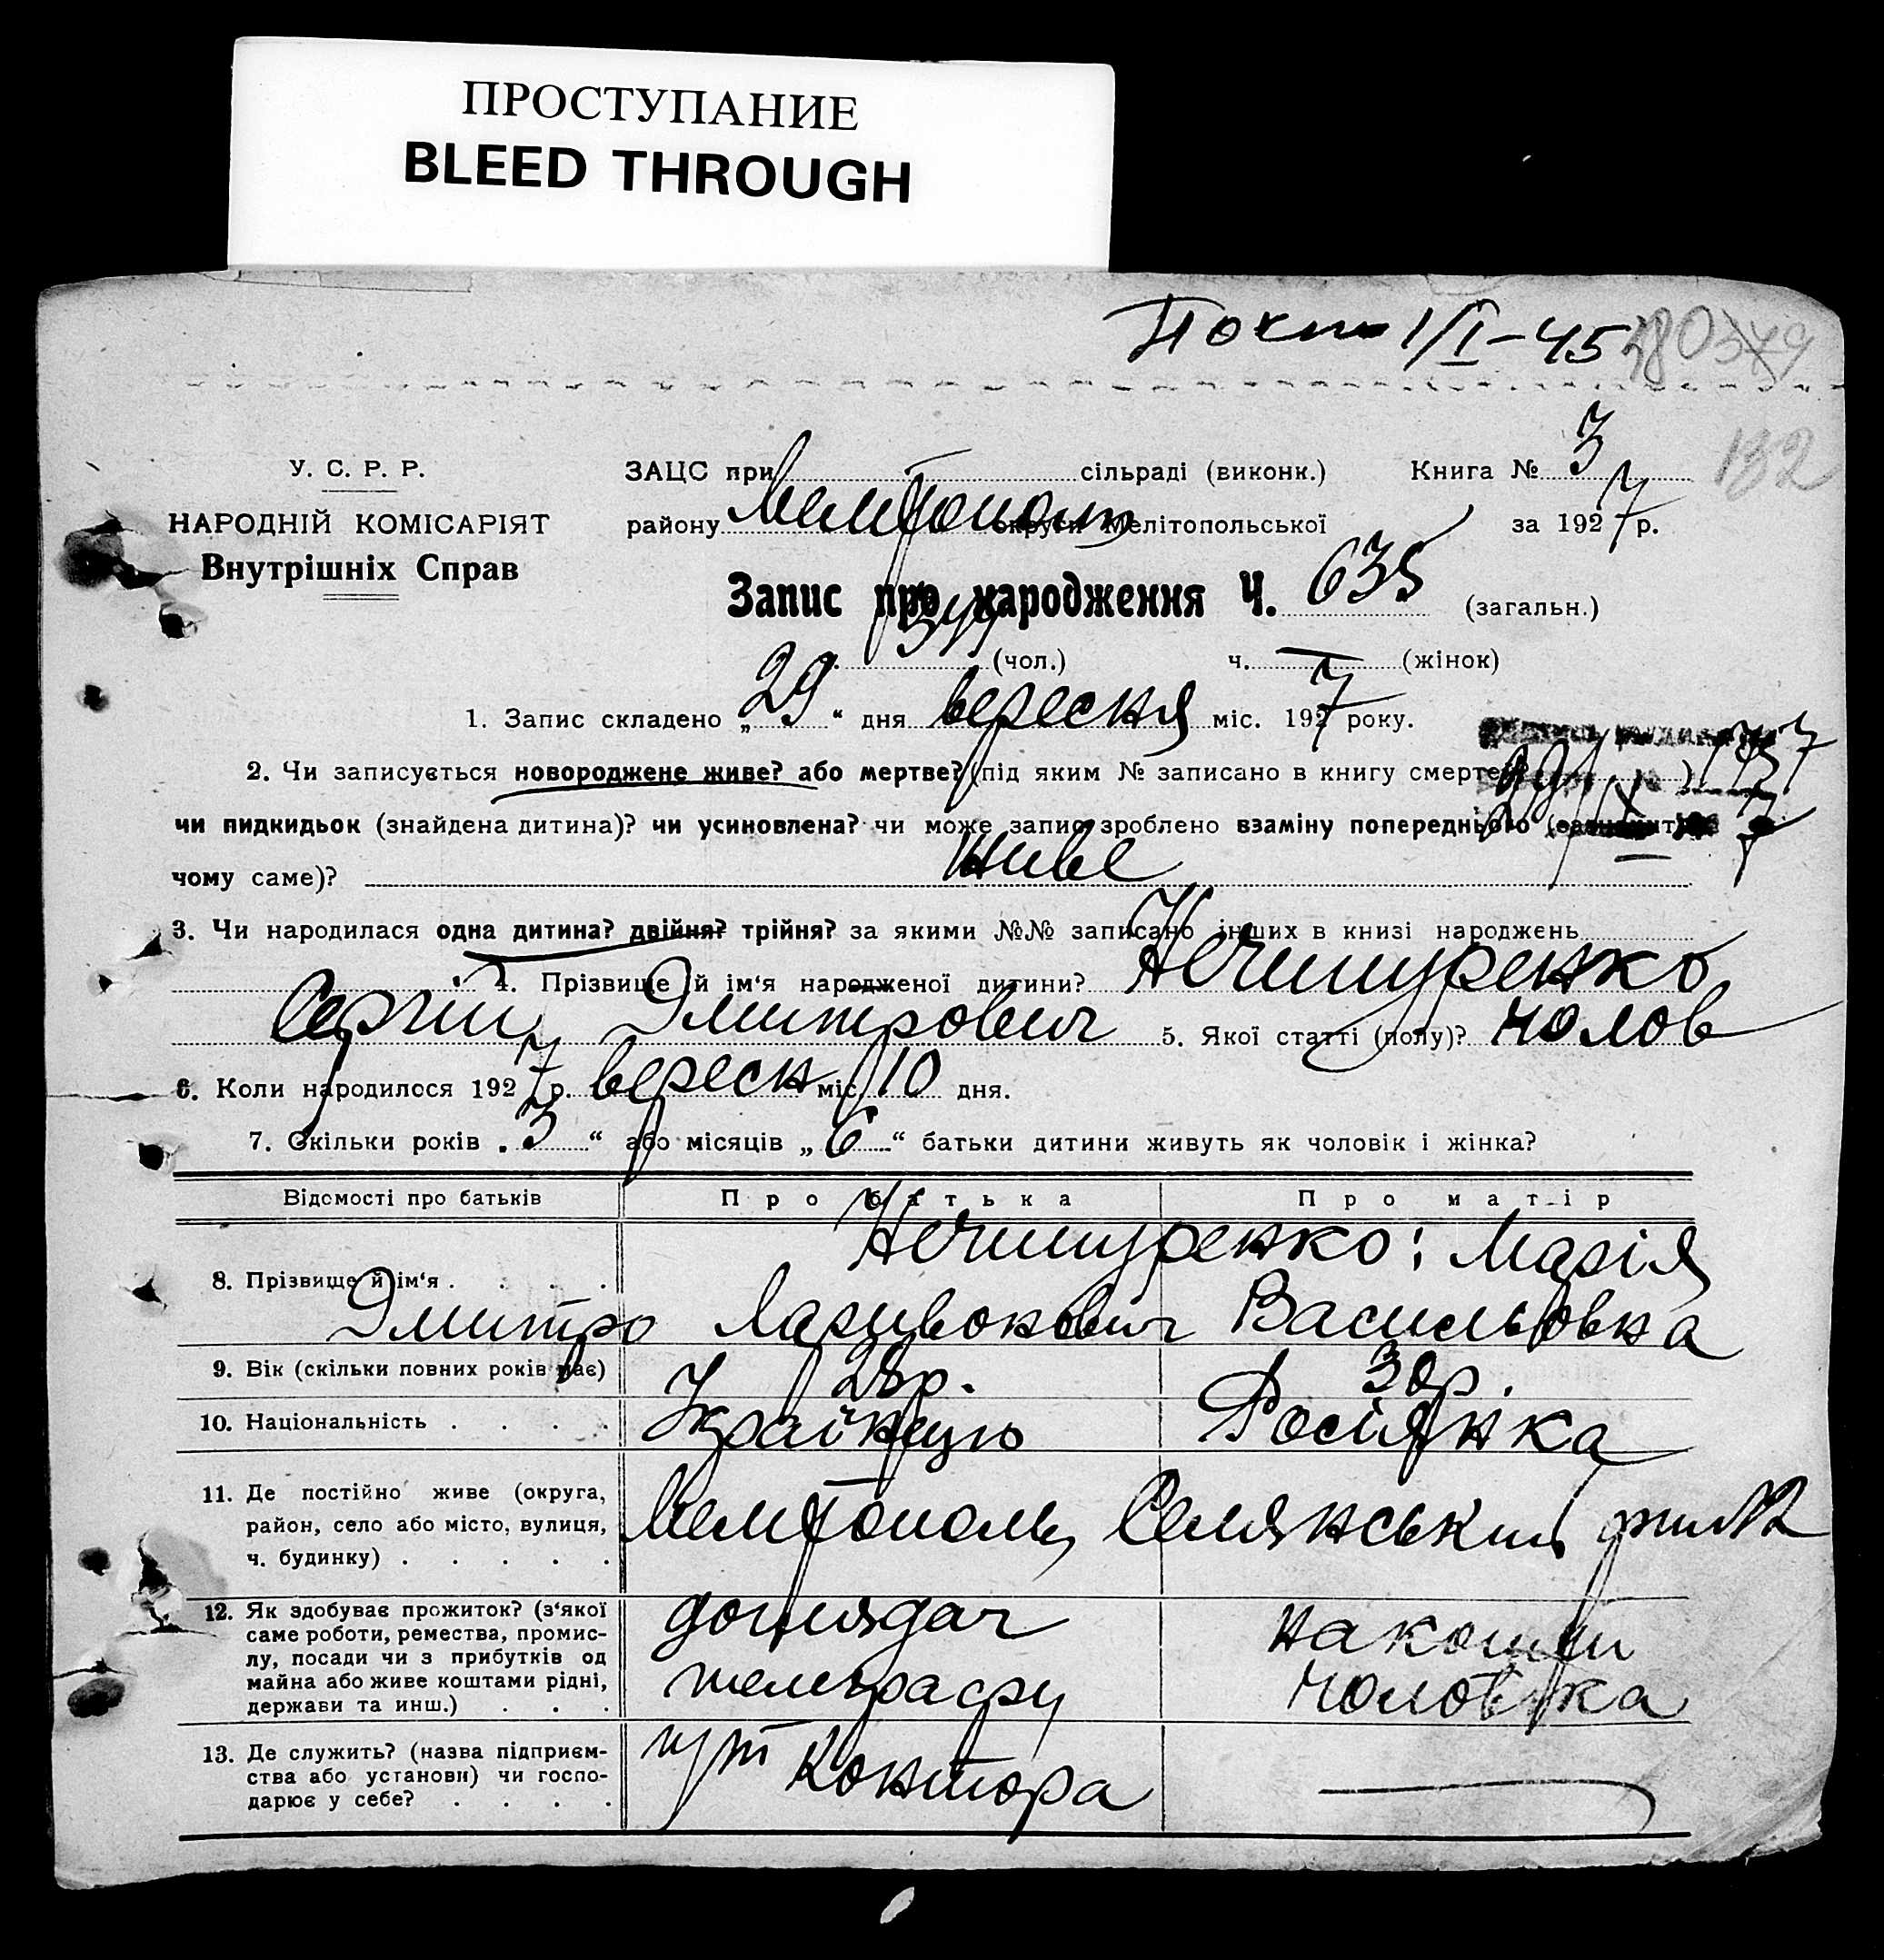 ПРОСТУПАНИЕ
BLEED THROUGH
1/I-45 380 379
132
У. С. Р. Р.
НАРОДНІЙ КОМІСАРІЯТ
Внутрішніх Справ
ЗАЦС при сільраді (виконк.) Книга № 3
району Мелітополь округи Мелітопольської за 1927 р.
Запис про народження Ч. 635 (загальн.)
(чол.) ч. — (жінок)
1. Запис складено „29“ дня вересня міс. 1927 року.
2. Чи записується новороджене живе? або мертве? (під яким № записано в книгу смертей )
чи пидкидьок (знайдена дитина)? чи усиновлена? чи може запис зроблено взаміну попереднього
чому саме)? живе
3. Чи народилася одна дитина? двійня? трійня? за якими №№ записано інших в книзі народжень
4. Прізвище й ім‘я народженої дитини? Нечипуренко
Сергій Дмитрович 5. Якої статті (полу)? чолов
6. Коли народилося 1927 р. вересн міс. 10 дня.
7. Скільки років „3“ або місяців „6“ батьки дитини живуть як чоловік і жінка?
Відомості про батьків Про батька Про матір
8. Прізвище й ім‘я . . . . Нечипуренко: Марія
Дмитро Васильовна
9. Вік (скільки повних років має) 28 р. 30 р.
10. Національність . . . . Українець Росіянка
11. Де постійно живе (округа,
район, село або місто, вулиця,
ч. будинку) . . . . .
Мелітополь, Селянський
12. Як здобуває прожиток? (з‘якої
саме роботи, ремества, промис-
лу, посади чи з прибутків од
майна або живе коштами рідні,
держави та инш.) . . .
доглядач
телеграфу
на кошти
чоловіка
13. Де служить? (назва підприєм-
ства або установи) чи госпо-
дарює у себе? . . . .
п/т Контора